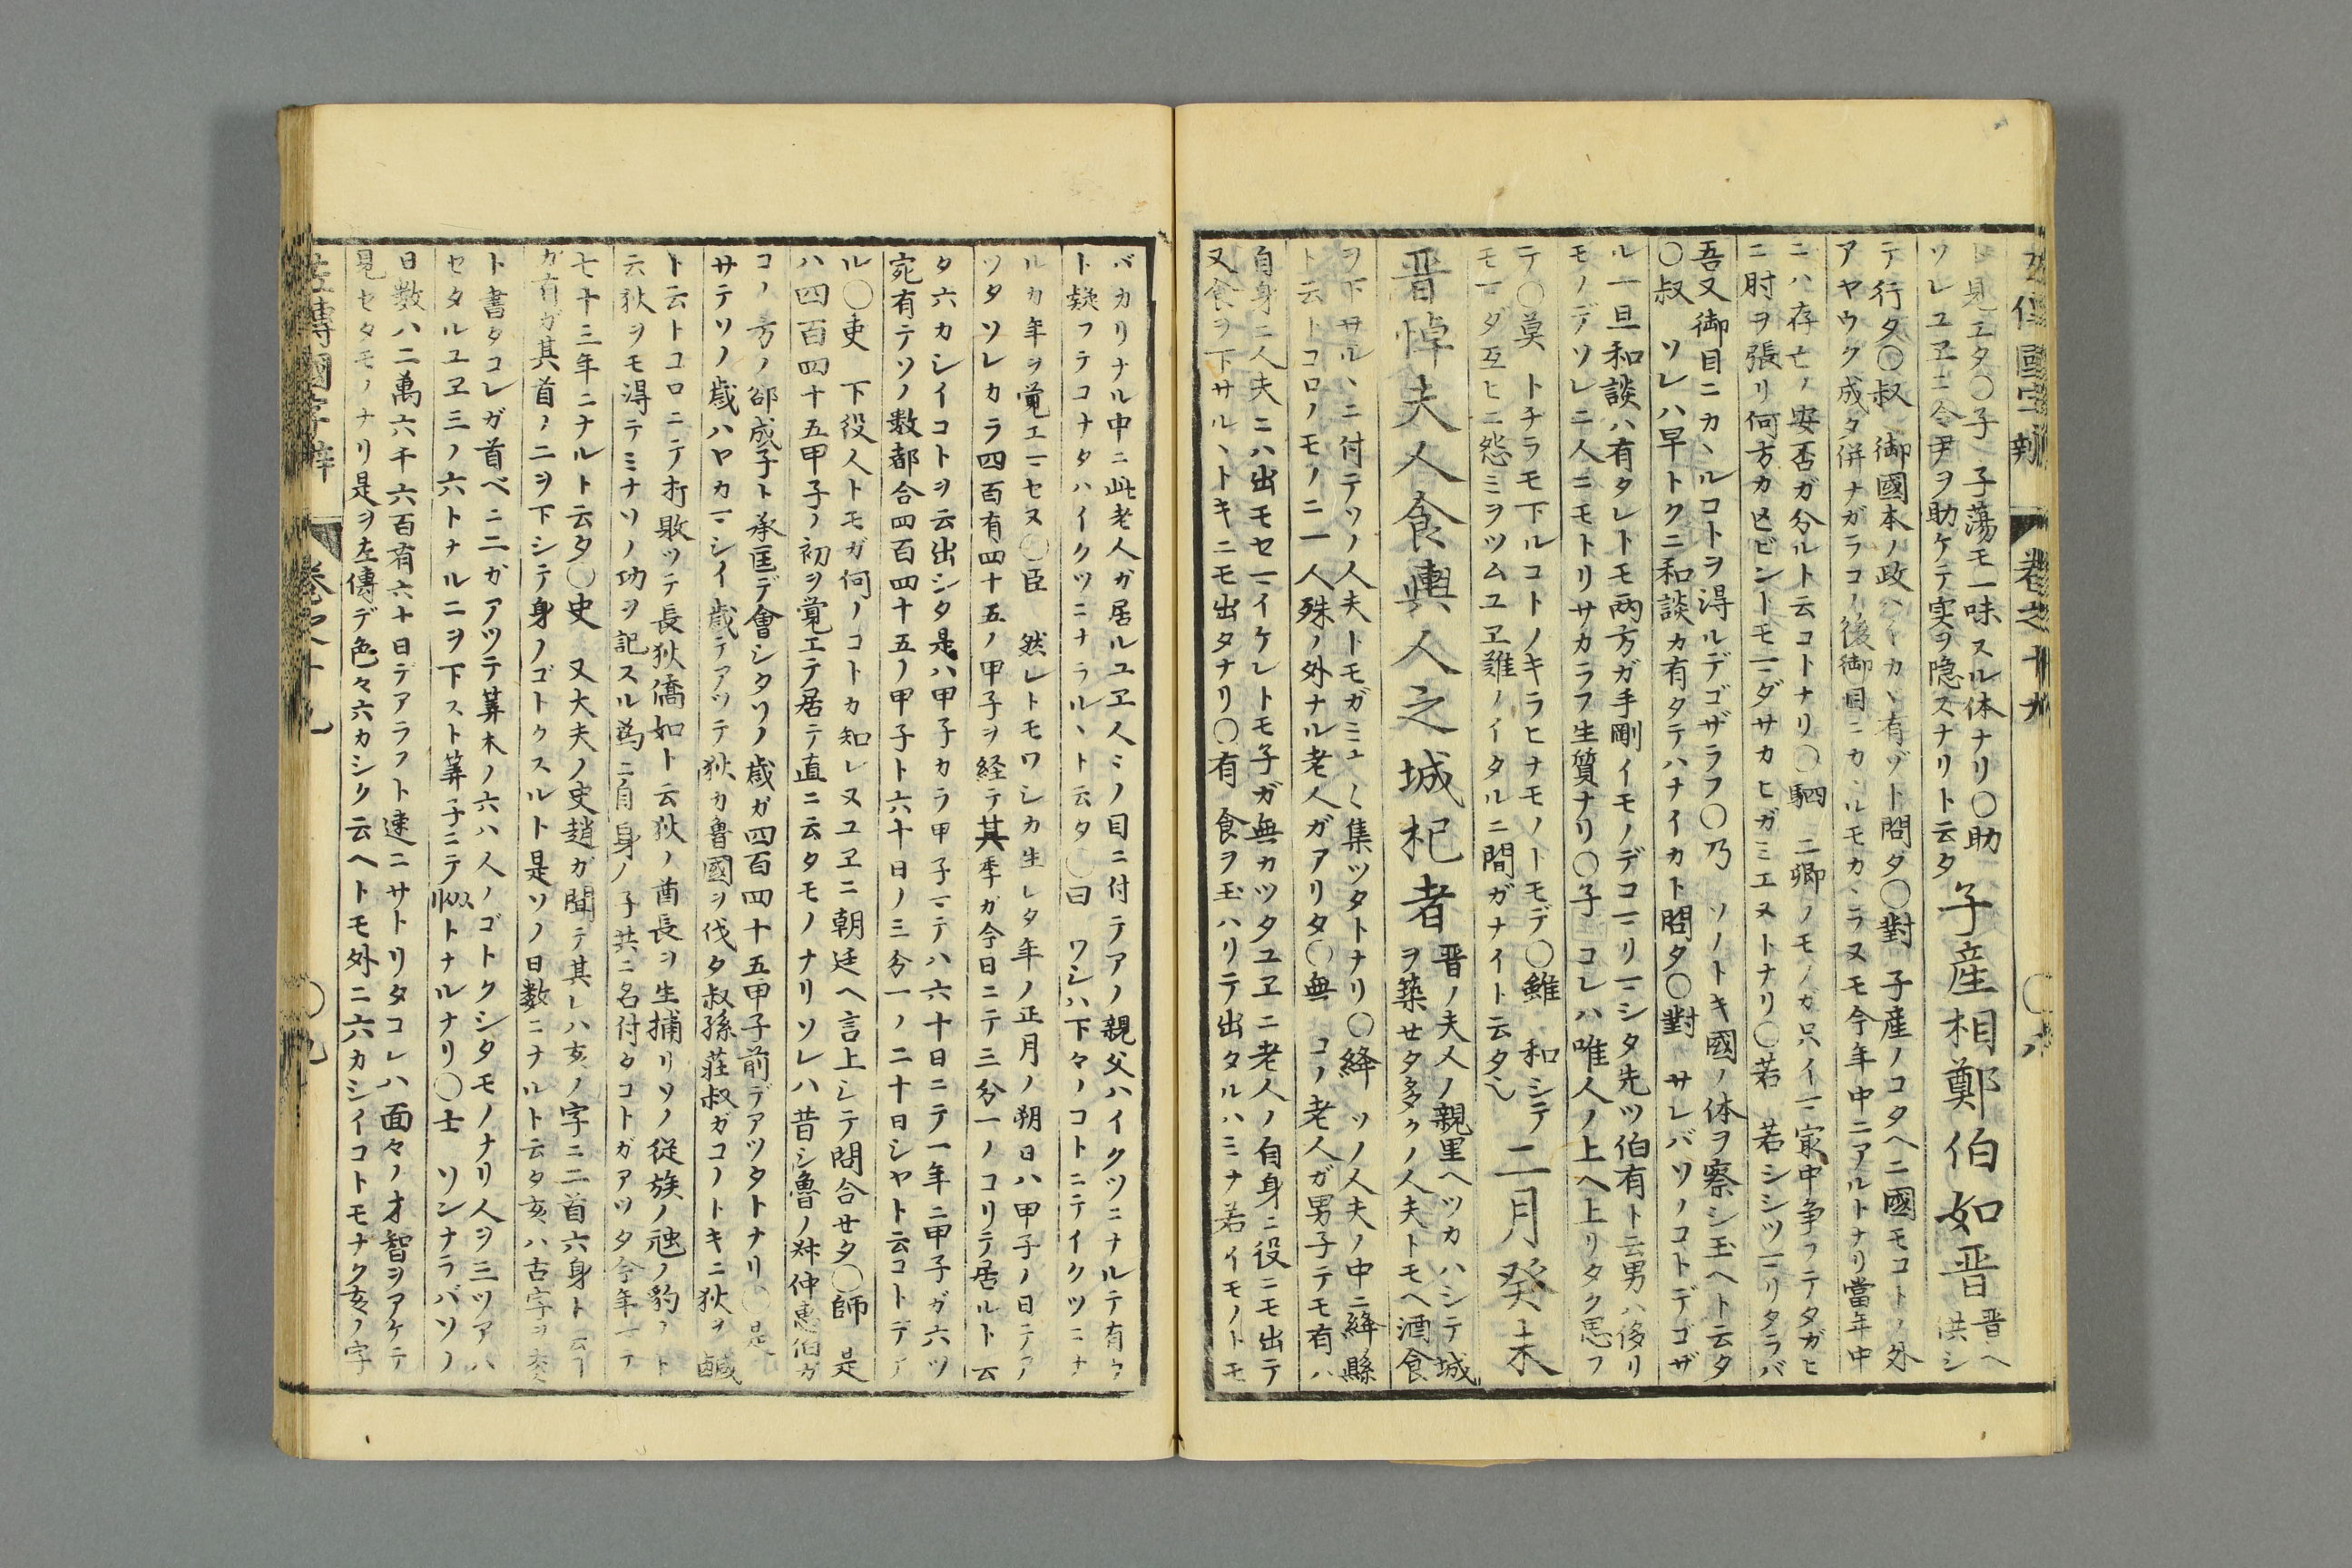 ト見エタ〇子 子蕩モ一味スル体ナリ〇助
ソレユヱニ令尹ヲ助ケテ実ヲ隠スナリト云タ
子産相鄭伯如晋
晋ヘ
洪シ
テ行タ〇叔 御國本ノ政ハ カヽ有ヅト問タ〇對 子産ノコタヘニ國モコトノ外
アヤウク成タ併ナガラコノ後御目ニカヽルモカヽラヌモ今年中ニアルトナリ當年中
ニハ存亡ノ安否ガ分ルト云コトナリ〇駟 二卿ノモノガ只イマ家中争フテタガヒ
ニ肘ヲ張リ何方カ ビントモマダサカヒガミエヌトナリ〇若 若シシツマリタラバ
吾又御目ニカヽルコトヲ得ルデゴザラフ〇乃 ソノトキ國ノ体ヲ察シ玉ヘト云タ
〇叔 ソレハ早トクニ和談カ有タテハナイカト問タ〇對 サレバソノコトデゴザ
ル一旦和談ハ有タレトモ両方ガ手剛イモノデコマリマシタ先ツ伯有ト云男ハ侈リ
モノデソレニ人ニモトリサカラフ生質ナリ〇子 コレハ唯人ノ上ヘ上リタク思フ
テ〇莫 トチラモ下ルコトノキラヒナモノトモデ〇雖 和シテ
モマダ互ヒニ怨ミヲツムユヱ難ノイタルニ間ガナイト云タ
二月癸未
晋悼夫人食輿人之城杞者
晋ノ夫人ノ親里ヘツカハシテ城
ヲ築セタ多クノ人夫トモヘ酒食
ヲ下サルヽニ付テソノ人夫トモガミナ〱集ツタトナリ〇絳 ソノ人夫ノ中ニ絳縣
ト云トコロノモノニ一人殊ノ外ナル老人ガアリタ〇無 コノ老人ガ男子テモ有ハ
自身ニ人夫ニハ出モセマイケレトモ子ガ無カツタユヱニ老人ノ自身ニ役ニモ出テ
又食ヲ下サルヽトキニモ出タナリ〇有 食ヲ玉ハリテ出タルハミナ若イモノトモ
バカリナル中ニ此老人ガ居ルユヱ人ミノ目ニ付テアノ親父ハイクツニナルテ有ウ
ト疑フテコナタハイクツニナラルヽト云タ〇曰 ワシハ下々ノコトニテイクツニナ
ルカ年ヲ覚エマセヌ〇臣 然レトモワシカ生レタ年ノ正月ノ朔日ハ甲子ノ日テア
ツタソレカラ四百有四十五ノ甲子ヲ経テ其季ガ今日ニテ三分一ノコリテ居ルト云
タ六カシイコトヲ云出シタ是ハ甲子カラ甲子マテハ六十日ニテ一年ニ甲子ガ六ツ
宛有テソノ数都合四百四十五ノ甲子ト六十日ノ三分一ノ二十日シヤト云コトデア
ル〇吏 下役人トモガ何ノコトカ知レヌユヱニ朝廷ヘ言上シテ問合セタ〇師 是
ハ四百四十五甲子ノ初ヲ覚エテ居テ直ニ云タモノナリソレハ昔シ魯ノ叔仲惠伯ガ
コノ方ノ郤成子ト承匡デ會シタソノ歳ガ四百四十五甲子前デアツタトナリ〇是
サテソノ歳ハヤカマシイ歳テアツテ狄カ魯國ヲ伐タ叔孫荘叔ガコノトキニ狄ヲ鹹
ト云トコロニテ打敗ツテ長狄僑如ト云狄ノ酋長ヲ生捕リソノ從族ノ虺ノ豹ノト
云狄ヲモ得テミナソノ功ヲ記スル為ニ自身ノ子共ニ名付タコトガアツタ今年マテ
七十三年ニナルト云タ〇史 又大夫ノ史趙ガ聞テ其レハ亥ノ字ニ二首六身ト云コ
ガ有ガ其首ノ二ヲ下シテ身ノゴトクスルト是ソノ日数ニナルト云タ亥ハ古字ヲ
ト書タコレガ首ベニ二ガアツテ筭木ノ六ハ人ノゴトクシタモノナリ人ヲ三ツアハ
セタルユヱ三ノ六トナルニヲ下スト筭子ニテ トナルナリ〇士 ソンナラバソノ
日数ハ二萬六千六百有六十日デアラフト速ニサトリタコレハ面々ノ才智ヲアケテ
見セタモノナリ是ヲ左傳デ色々六カシク云ヘトモ外ニ六カシイコトモナク亥ノ字
左傳國字辯 巻之十九 〇九